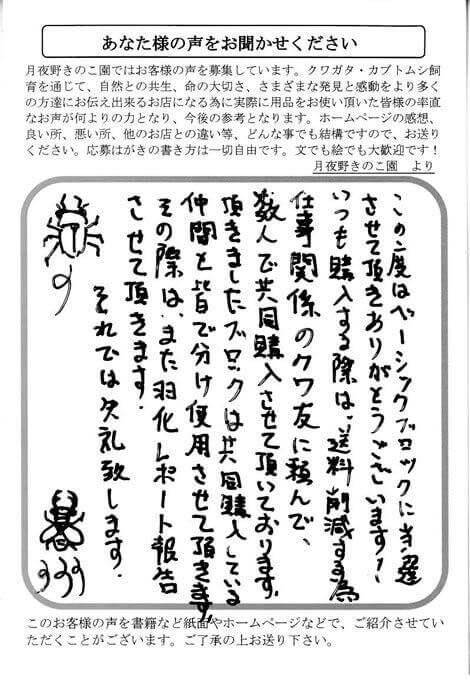 あなた様の声をお聞かせください
月夜野きのこ園ではお客様の声を募集しています。クワガタ・カブトムシ飼
育を通じて、自然との共生、命の大切さ、さまざまな発見と感動をより多く
の方達にお伝え出来るお店になる為に実際に用品をお使い頂いた皆様の率直
なお声が何よりの力となり、今後の参考となります。ホームページの感想、
良い所、悪い所、他のお店との違い等、どんな事でも結構ですので、お送り
ください。応募はがきの書き方は一切自由です。文でも絵でも大歓迎です！
月夜野きのこ園　より
この度はベーシックブロックに当選
させて頂きありがとうございます！
いつも購入する際は、送料削減する為
仕事関係のクワ友に頼んで、
数人で共同購入させて頂いております。
頂きましたブロックは共同購入している
仲間と皆で分け使用させて頂きます。
その際は、また羽化レポート報告
させて頂きます。
それでは失礼致します。
このお客様の声を書籍など紙面やホームページなどで、ご紹介させてい
ただくことがございます。ご了承の上お送り下さい。